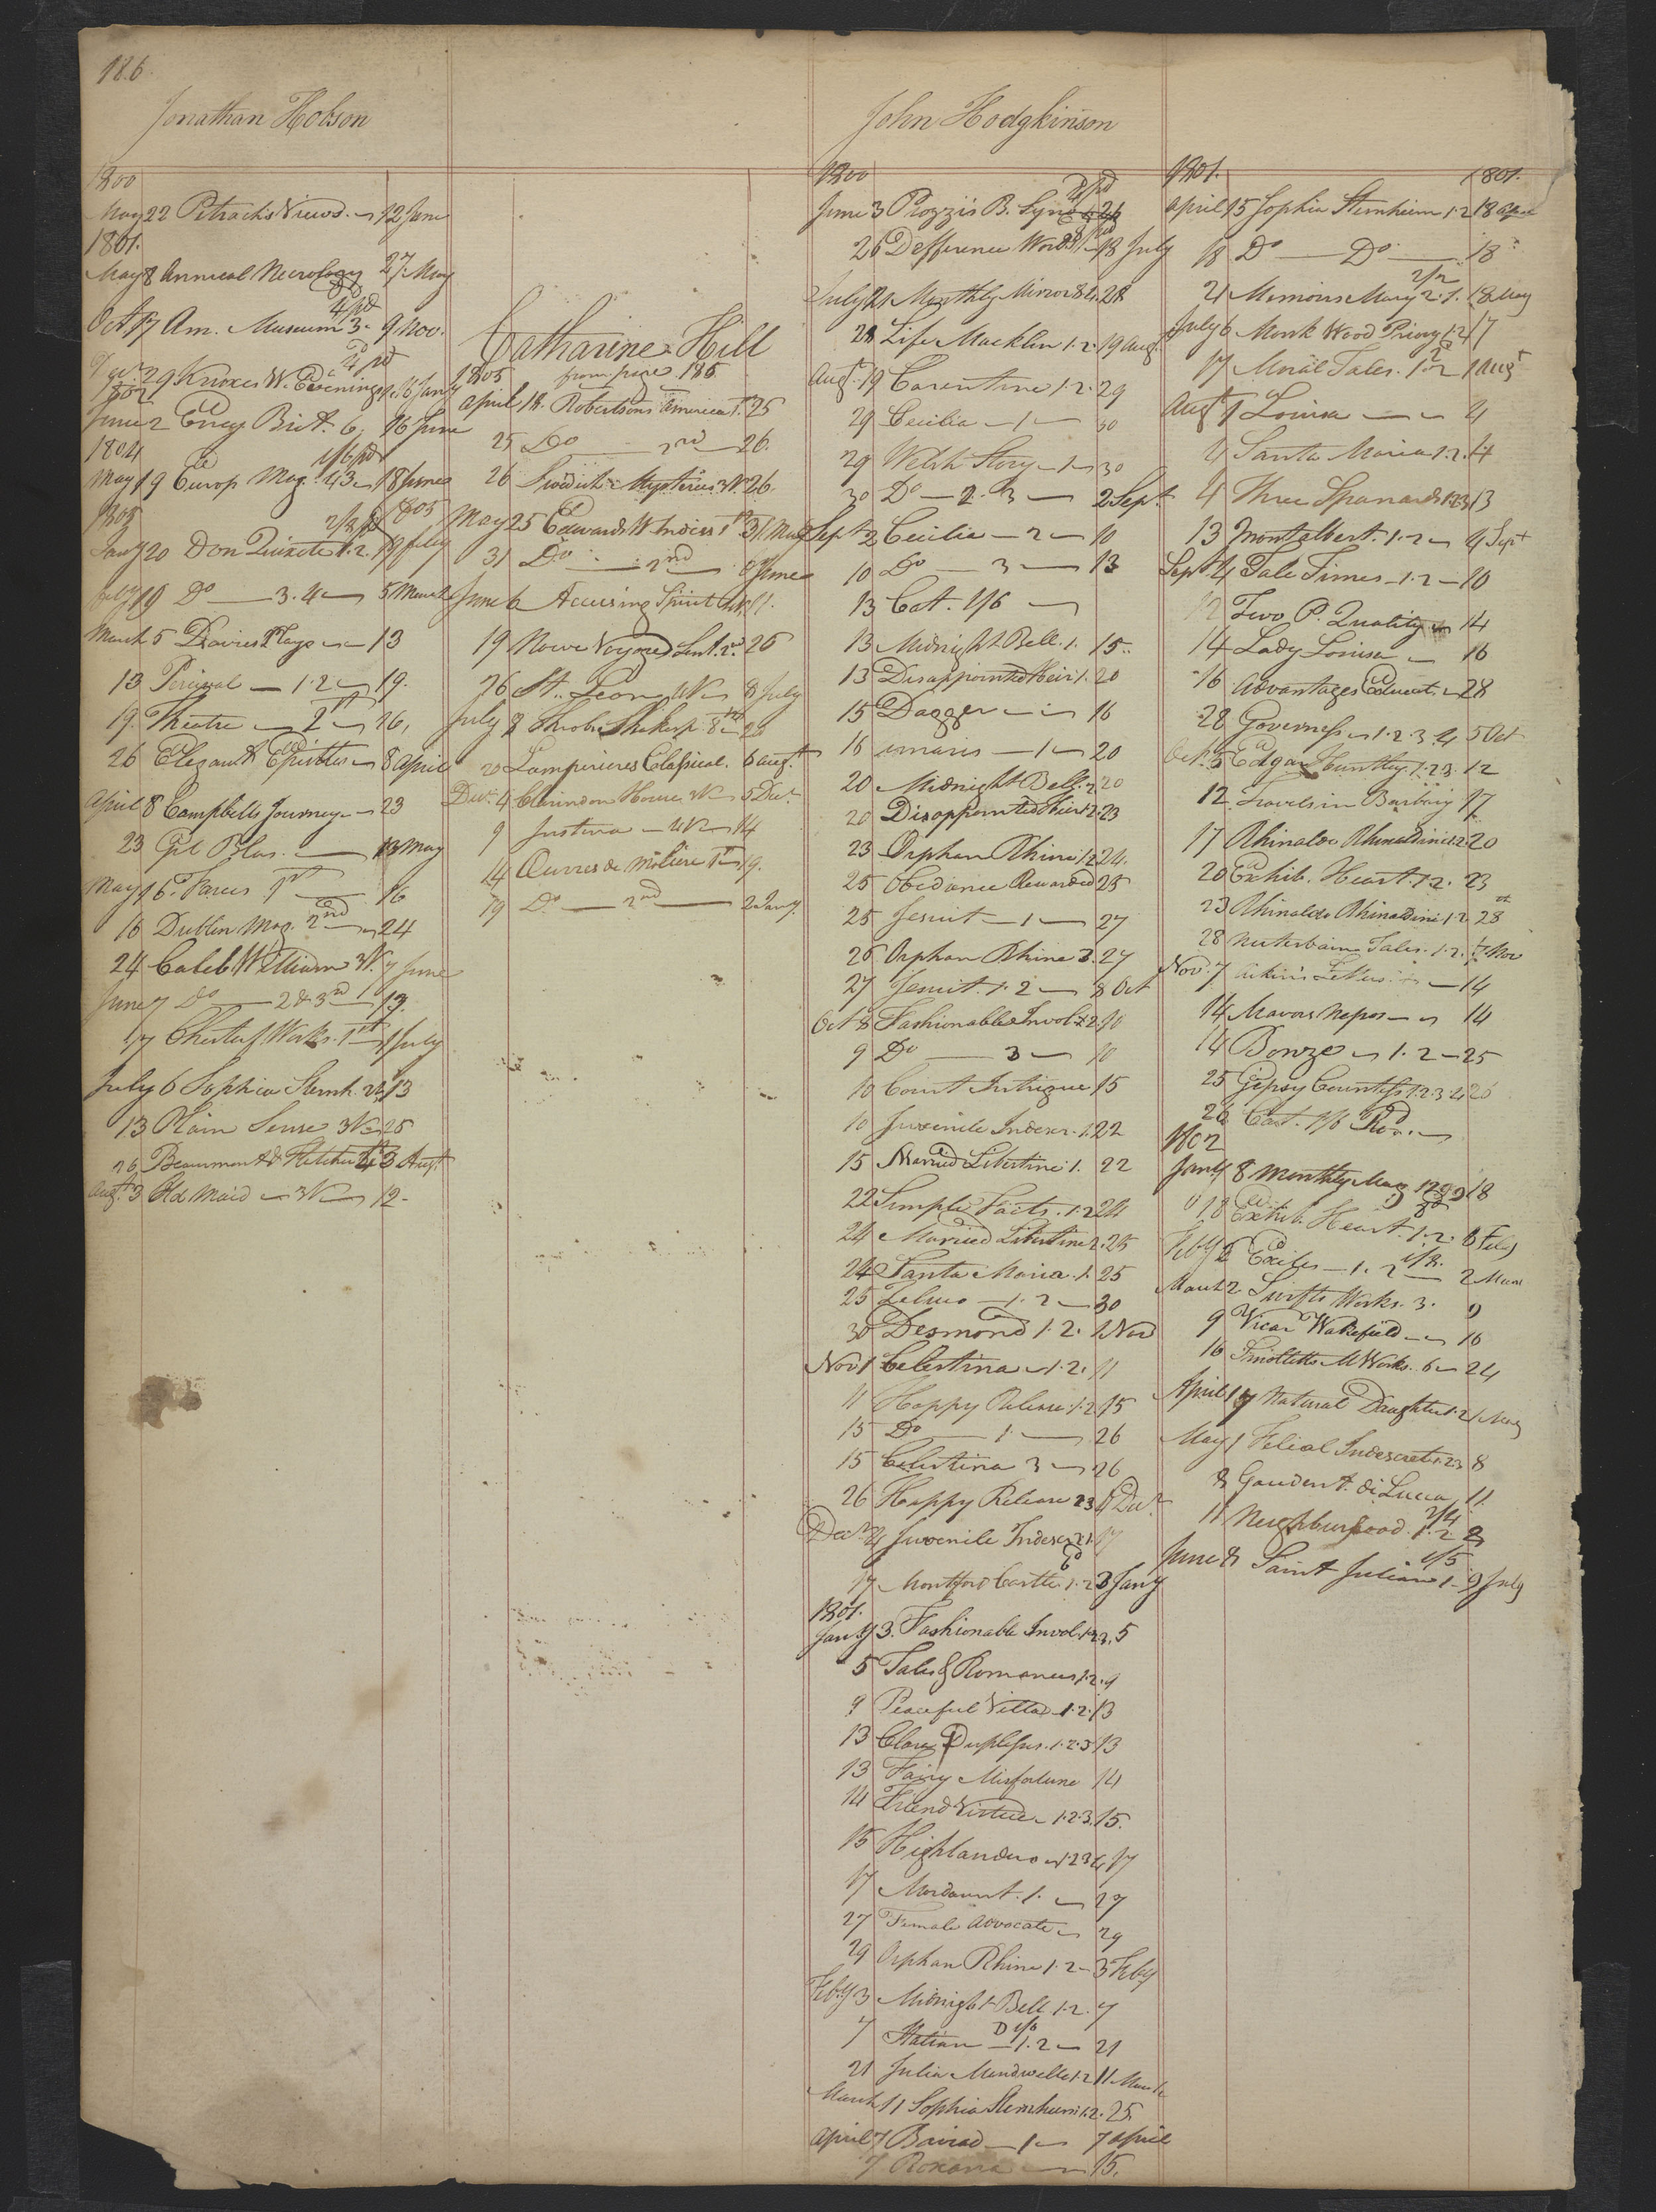 186
Jonathan Hobson
1800
May 22 Petrachs Views 12 June
1801.
May 8 Annual Necrology 27 May
4/ pd
Oct 17 Am. Museum 3 9 Nov.
pd
29 Knoxes W. Evenings 16 Jany
1802
June 2 Ency Brit. 6 16 June
1804
1/6 pd
May 19 Europ Mag. 43 18 June
1805 1805
2/3 pd
Jany 20 Don Quixote 1.2. 19 July
19 Do 3.4 5 March
March 5 Davies Plays 13
13 Percival 1.2 19.
19. Theatre 2 26,
26 Elegant Epistles 8 April
April 8 Campbells Journey 23
23 Gil Blas. 13 May
May 16. Farces 1st 16
16 Dublin Mag. 2nd 24
24 Caleb William 3V. 7 June
June 7 Do 2 & 3rd 19.
17 Chesterf Works. 1st 1 July
July 6 Sophia Sternh. 13
13 Plain Sense 3V 25
26 Beaumont & Fletcher 3 Augt
Augt 3 Old Maid 3V 12
Catharine Hill
from page 185
1805
April 18. Robertsons America 1st 25
25 Do 2nd 26.
26 Swedish Mysteries 3V. 26.
May 25 Edwards W Indies 1st 31 May
31 Do 2nd 6 June
June 6 Accusing Spirit 4V. 11.
19 Nouve Voyage Sent. 2d 26
26 St. Leon 8 July
July 8 Shakesp. 8th 20
20 Lamprieres Classical. 6 Augt
Decr 4 Clarindon House 3V 5 Decr
9 Justina 14
14 Œuvres de Moliere 1st 19.
19 Do 2nd 2 Jany.
John Hodgkinson
1800
2/ pd
June 3 Piozzi's B. Syno 26
26 Defference Words 1 18 July
July 21 Monthly Mirror 8 28
28 Life Macklin 1.2. 19 Aug.
Augt 19 Carentine 1.2. 29
29 Cecilia 1 30
29 Welch Story 1 30
30 Do 2. 3 2 Sept.
Sept 2 Cecilia 2 10
10 Do 3 13
13 Cat. 1/6
13 Midnight Bell. 1. 15
13 Disappointed Heir 1. 20
15 Dagger 16
16 1 20
20 Midnight Bell. 2 20
20 Disappointed Heir 1.2. 23
23 Orphan Rhine 1.2 24.
25 Obedience Rewarded 25
25 Jesuit 1 27
26 Orphan Rhine 3. 27
27 Jesuit. 1.2 8 Oct
Oct 8 Fashionable Invol 1.2. 10
9 Do 3 10
10 Court Intrigue 15
10 Juvenile Indescr. 1. 22
15 Married Libertine 1. 22
22 Simple Facts. 1.2 24
24 Married Libertine 2. 25
24 Santa Maria. 1. 25
25 Zeluco 1.2 30
30 Desmond 1.2. 1 Nov
Nov 1 Celestina 1.2. 11
11 Happy Release 1.2 15
15 Do 1 26
15 Celestina 3 26
26 Happy Release 2 3 Decr
Decr 4 Juvenile Indescr. 17
17 Montford Castle 1.2 3 Jany
1801.
Jany 3. Fashionable Invol. 1.2.3. 5
5 Tales & Romances 1.2. 9
9 Peaceful Villa 1.2. 13
13 Clara Duplessis. 1.2.3 13
13 Fairy Misfortune 14
14 Friend Virtue 1.2.3. 15.
15 Highlanders 1.2 3 4 17
17 Mordaunt. 1. 27
27 Female Advocate 29
29 Orphan Rhine 1.2 3 Feby
Feby 3 Midnight Bell 1.2. 7
7 Italian 1.2 21
21 Julia 1.2 11 March
March 11 Sophia Sternheim 1.2. 25.
April 7 1 7 April
7 Roxana 15.
1801. 1801.
April 15 Sophia Sternheim 1.2 18 April
18 Do Do 18
2/2
21 Memoirs Mary 2.1. 18 May
July 6 Monk Wood Priory 1.2 17
17 Moral Tales. 1.2 1 Augt
Augt 1 Louisa 4
4 Santa Maria 1.2. 4
4 Three Spaniards 1.2.3 13
13 Montalbert 1.2 4 Sept
Sept 4 Tale Times 1.2 10
12 Two P. Quality 14
14 Lady Louisa 16
16 Advantages Educat. 28
28 Governess 1.2.3.4 5 Oct
Oct. 5 Edgar Huntley. 1.2.3. 12
12 Travels in Barbary 17
17 Rhinaldo Rhinaldini 1.2 20
20 Exhib. Heart. 1.2. 23
23 Rhinaldo Rhinaldini 1.2. 28
28 Tales. 1.2. 7 Nov
Nov. 7 Aikin's Letters 14
14 Mavors Nepos 14
14 Bonze 1.2 25
25 Gipsy Countess 1.2.3.4 26
26 Cat. 1/6
1802
Jany 8 Monthly Mag. 12 18
18 Exhib. Heart. 1.2. 6 Feby
Feby 6 Exiles 1. 2 2 Mar
March 2. Swifts Works. 3. 9
9 Vicar Wakefield 16
16 Smolletts M Works. 6 24
April 17 Natural Daughter 1.2 1 May
May 1 Felial Indescret 1.2.3 8
8 Gaudent. di Lucca 11.
2/4
11 Neighburhood. 1.2. 8
1/5
June 8 Saint Julian 1 9 July